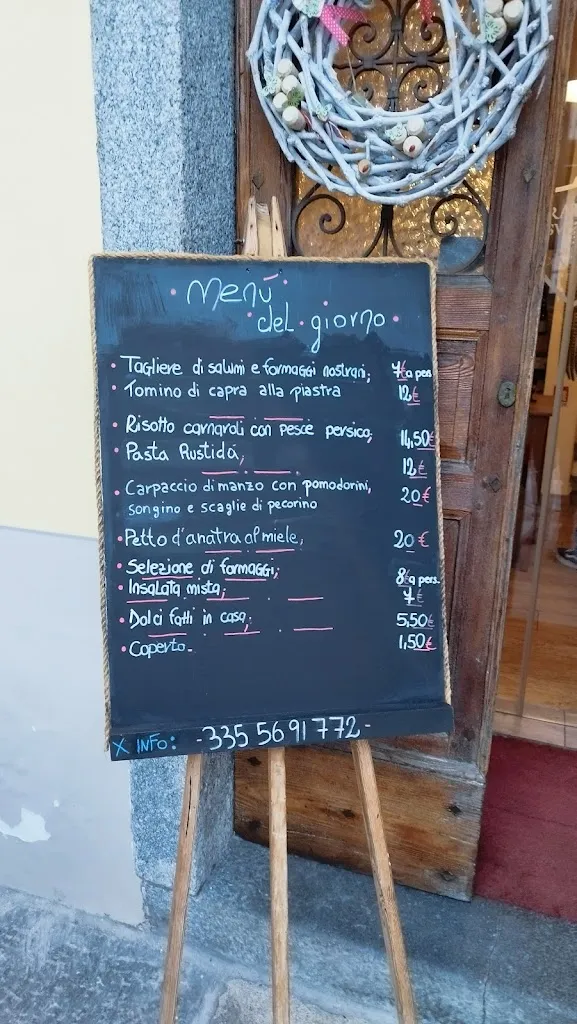 Menú
del giorno
• Tagliere di salumi e formaggi nostrani; 7€ a pers.
• Tomino di capra alla piastra 12€
• Risotto carnaroli con pesce persico; 14,50€
• Pasta Rustida; 12€
• Carpaccio di manzo con pomodorini, 20€
songino e scaglie di pecorino
• Petto d'anatra al miele; 20€
• Selezione di formaggi; 8€ a pers.
• Insalata mista; 7€
• Dolci fatti in casa; 5,50€
• Coperto. 1,50€
X INFO: -335 5691772-